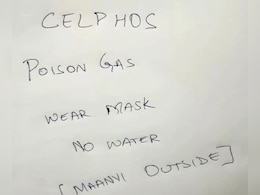 CELPHOS
POISON GAS
WEAR MASK
NO WATER
[MAANVI OUTSIDE]